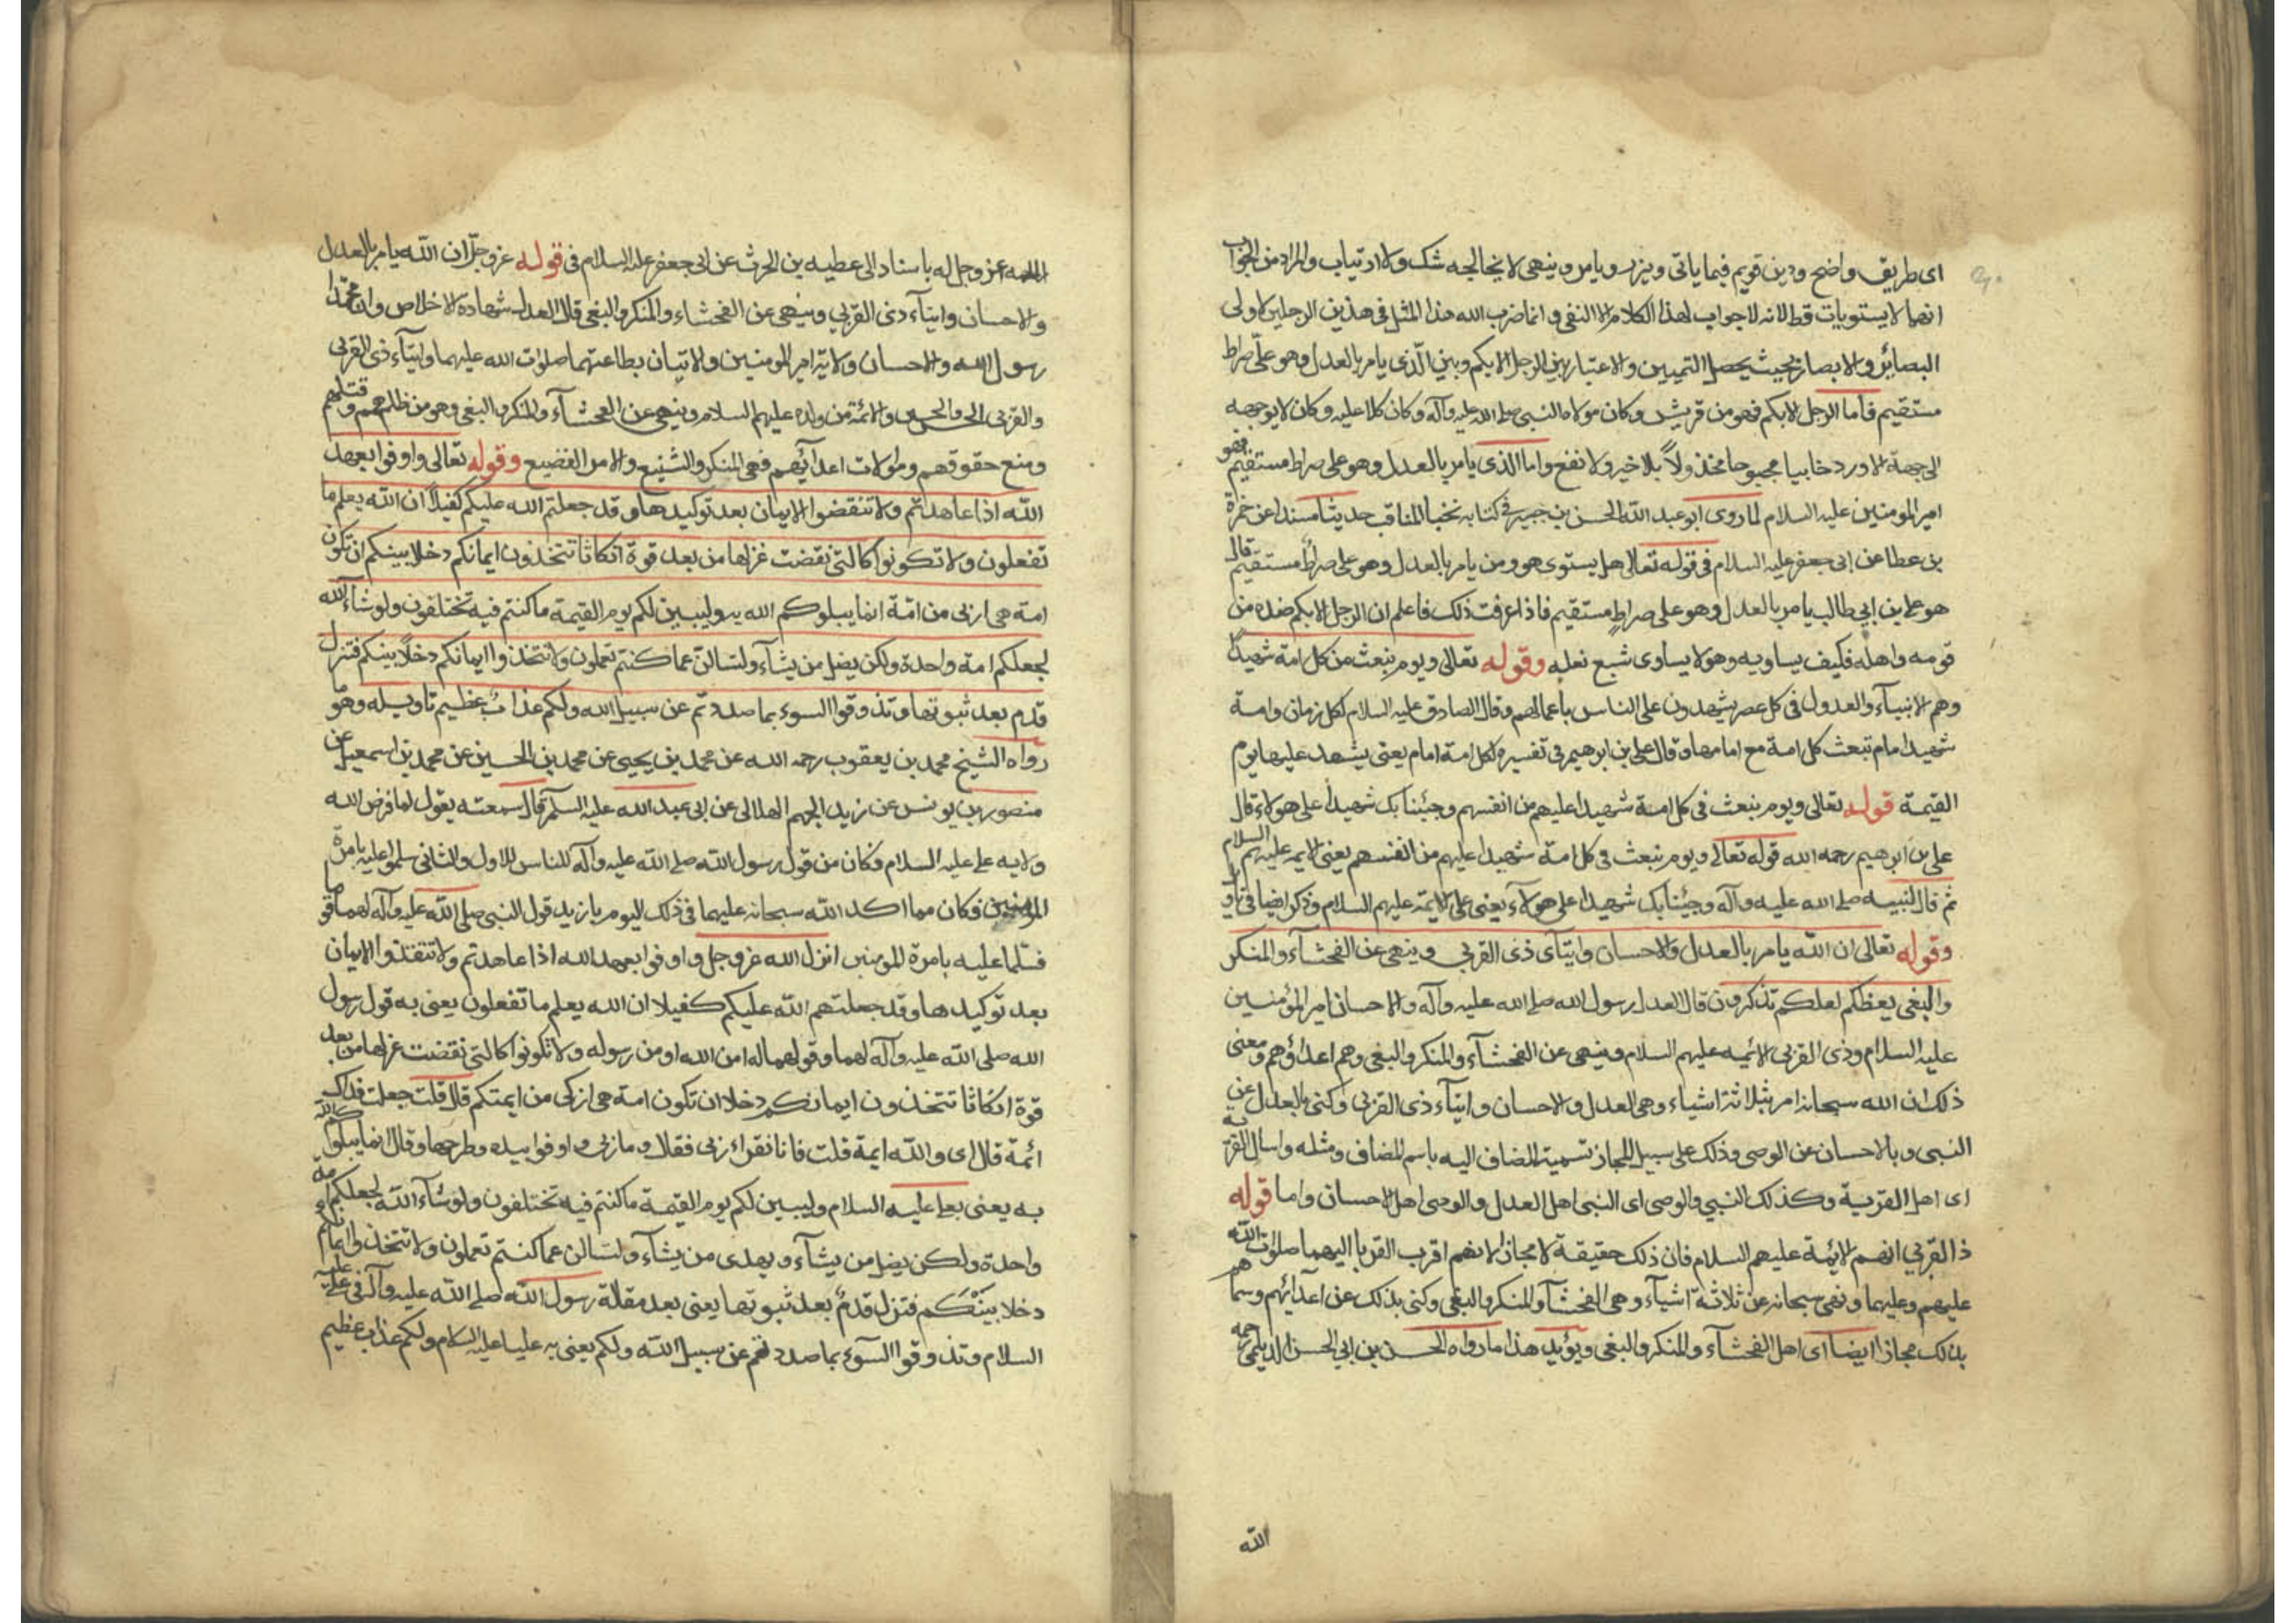 اى طريق واضح ودين قويم فيما ياتى ويزر ويامر وينهى لا يخالجه شك ولا ارتياب والمراد من الجواب
انهما لا يستويان قط لانه لا جواب لهذا الكلام الا النفى وانما ضرب الله هذا المثل فى هذين الرجلين لاولى
البصائر والابصار بحيث يحصل التمييز والاعتبار بين الرجل الابكم وبين الذى يامر بالعدل وهو على صراط
مستقيم فاما الرجل الابكم فهو من قريش وكان مولاه النبى صلى الله عليه وآله وكان كلا عليه وكان لا يوجهه
الى جهة الا ورد خايبا مجبوحا مخذولاً بلا خير ولا نفع واما الذى يامر بالعدل وهو على صراط مستقيم فهو
امير المومنين عليه السلام لما روى ابو عبد الله الحسن بن جبير فى كتابه نخب المناقب حديثا مسندا عن حمزة
بن عطا عن ابى جعفر عليه السلام فى قوله تعالى هل يستوى هو ومن يامر بالعدل وهو على صراط مستقيم قال
هو على بن ابى طالب يامر بالعدل وهو على صراطٍ مستقيم فاذا عرفت ذلك فاعلم ان الرجل الابكم ضده من
قومه واهله فكيف يساويه وهو لا يساوى شسع نعله وقوله تعالى ويوم نبعث من كل امة شهيدًا
وهم الانبيآء والعدول فى كل عصر يشهدون على الناس باعمالهم وقال الصادق عليه السلام لكل زمان وامة
شهيدا امام تبعث كل امة مع امامها وقال على بن ابرهيم فى تفسيره لكل امة امام يعنى يشهد عليها يوم
القيمة قوله تعالى ويوم نبعث فى كل امة شهيدا عليهم من انفسهم وجئنا بك شهيدا على هولاء قال
على بن ابرهيم رحمه الله قوله تعالى ويوم نبعث فى كل امة شهيدا عليهم من انفسهم يعنى الايمه عليهم السلام
ثم قال لنبيه صلى الله عليه وآله وجئنا بك شهيدا على هولآء يعنى على الايمة عليهم السلام وذكر ايضا فى تاويل
وقوله تعالى ان الله يامر بالعدل والاحسان وايتآى ذى القربى وينهى عن الفحشآء والمنكر
والبغى يعظكم لعلكم تذكرون قال العدل رسول الله صلى الله عليه وآله والاحسان امير المؤمنين
عليه السلام وذى القربى الائمه عليهم السلام وينهى عن الفحشآء والمنكر والبغى وهم اعداؤهم ومعنى
ذلك ان الله سبحانه امر بثلاثة اشياء وهى العدل والاحسان وايتآء ذى القربى وكنى بالعدل عن
النبى وبالاحسان عن الوصى وذلك على سبيل المجاز تسمية المضاف اليه باسم المضاف ومثله واسال القرية
اى اهل القرية وكذلك النبي والوصى اى النبى اهل العدل والوصى اهل الاحسان واما قوله
ذا القربى انهم الايمة عليهم السلام فان ذلك حقيقة لا مجاز لانهم اقرب القربا اليهما صلوات الله
عليهم وعليهما ونهى سبحانه عن ثلاثة اشيآء وهى الفحشآء والمنكر والبغى وكنى بذلك عن اعدآئهم وسماهم
بذلك مجازا ايضا اى اهل الفحشآء والمنكر والبغى ويؤيد هذا ما رواه الحسن بن ابى الحسن الديلمى رحمه
الله
الله عز وجل له باسناد الى عطيه بن الحرث عن ابى جعفر عليه السلام فى قوله عز وجلّ ان الله يامر بالعدل
والاحسان وايتآء ذى القربى وينهى عن الفحشاء والمنكر والبغى قال العدل شهادة الاخلاص وان محمّدا
رسول الله والاحسان ولاية امير المومنين والاتيان بطاعتهما صلوات الله عليهما وايتآء ذى القربى
والقربى الحسن والحسين والائمة من ولده عليهم السلام وينهى عن الفحشآء والمنكر والبغى وهو من ظلمهم وقتلهم
ومنع حقوقهم وموالات اعدآئهم فهى المنكر والشنيع والامر الفضيع وقوله تعالى واوفوا بعهد
الله اذا عاهدتم ولا تنقضوا الايمان بعد توكيدها وقد جعلتم الله عليكم كفيلاً ان الله يعلم ما
تفعلون ولا تكونوا كالتى نقضت غزلها من بعد قوة انكاثا تتخذون ايمانكم دخلا بينكم ان تكون
امة هى اربى من امّة انما يبلوكم الله به وليبين لكم يوم القيمة ما كنتم فيه تختلفون ولو شآء الله
لجعلكم امة واحدة ولكن يضل من يشآء ولتسالن عما كنتم تعملون ولا تتخذوا ايمانكم دخلاً بينكم فتزل
قدم بعد ثبوتها وتذوقوا السوء بما صددتم عن سبيل الله ولكم عذاب عظيم تاويله وهو ما
رواه الشيخ محمد بن يعقوب رحمه الله عن محمد بن يحيى عن محمد بن الحسين عن محمد بن اسمعيل عن
منصور بن يونس عن زيد الجهم الهلالى عن ابى عبد الله عليه السلم قال سمعته يقول لما فرض الله
ولايه على عليه السلام وكان من قول رسول الله صلى الله عليه وآله للناس للاول والثانى سلموا عليه بامرة
المومنين فكان مما اكد الله سبحانه عليهما فى ذلك اليوم يا زيد قول النبى صلى الله عليه وآله لهما قوما
فسلما عليه بامرة المومنين انزل الله عز وجل واوفوا بعهد الله اذا عاهدتم ولا تنقضوا الايمان
بعد توكيدها وقد جعلتهم الله عليكم كفيلا ان الله يعلم ما تفعلون يعنى به قول رسول
الله صلى الله عليه وآله لهما وقولهما له امن الله او من رسوله ولا تكونوا كالتى نقضت غزلها من بعد
قوة انكاثا تتخذون ايمانكم دخلا ان تكون امة هى ازكى من ايمتكم قال قلت جعلت فداك
ائمة قال اى والله ايمة قلت فانا نقراء اربى فقال وما اربى واوفوا بيده وطرحها وقال انما يبلوكم الله
به يعنى بعلى عليه السلام وليبين لكم يوم القيمة ما كنتم فيه تختلفون ولو شآء الله لجعلكم امة
واحدة ولكن يضل من يشآء ويهدى من يشآء ولتسالن عما كنتم تعملون ولا تتخذوا ايمانكم
دخلا بينكم فتزل قدم بعد ثبوتها يعنى بعد مقالة رسول الله صلى الله عليه وآله فى على عليه
السلام وتذوقوا السوء بما صددتم عن سبيل الله ولكم يعنى به عليا عليه السلام ولكم عذاب عظيم